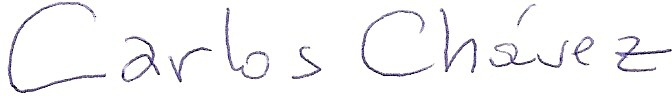 Carlos Chávez